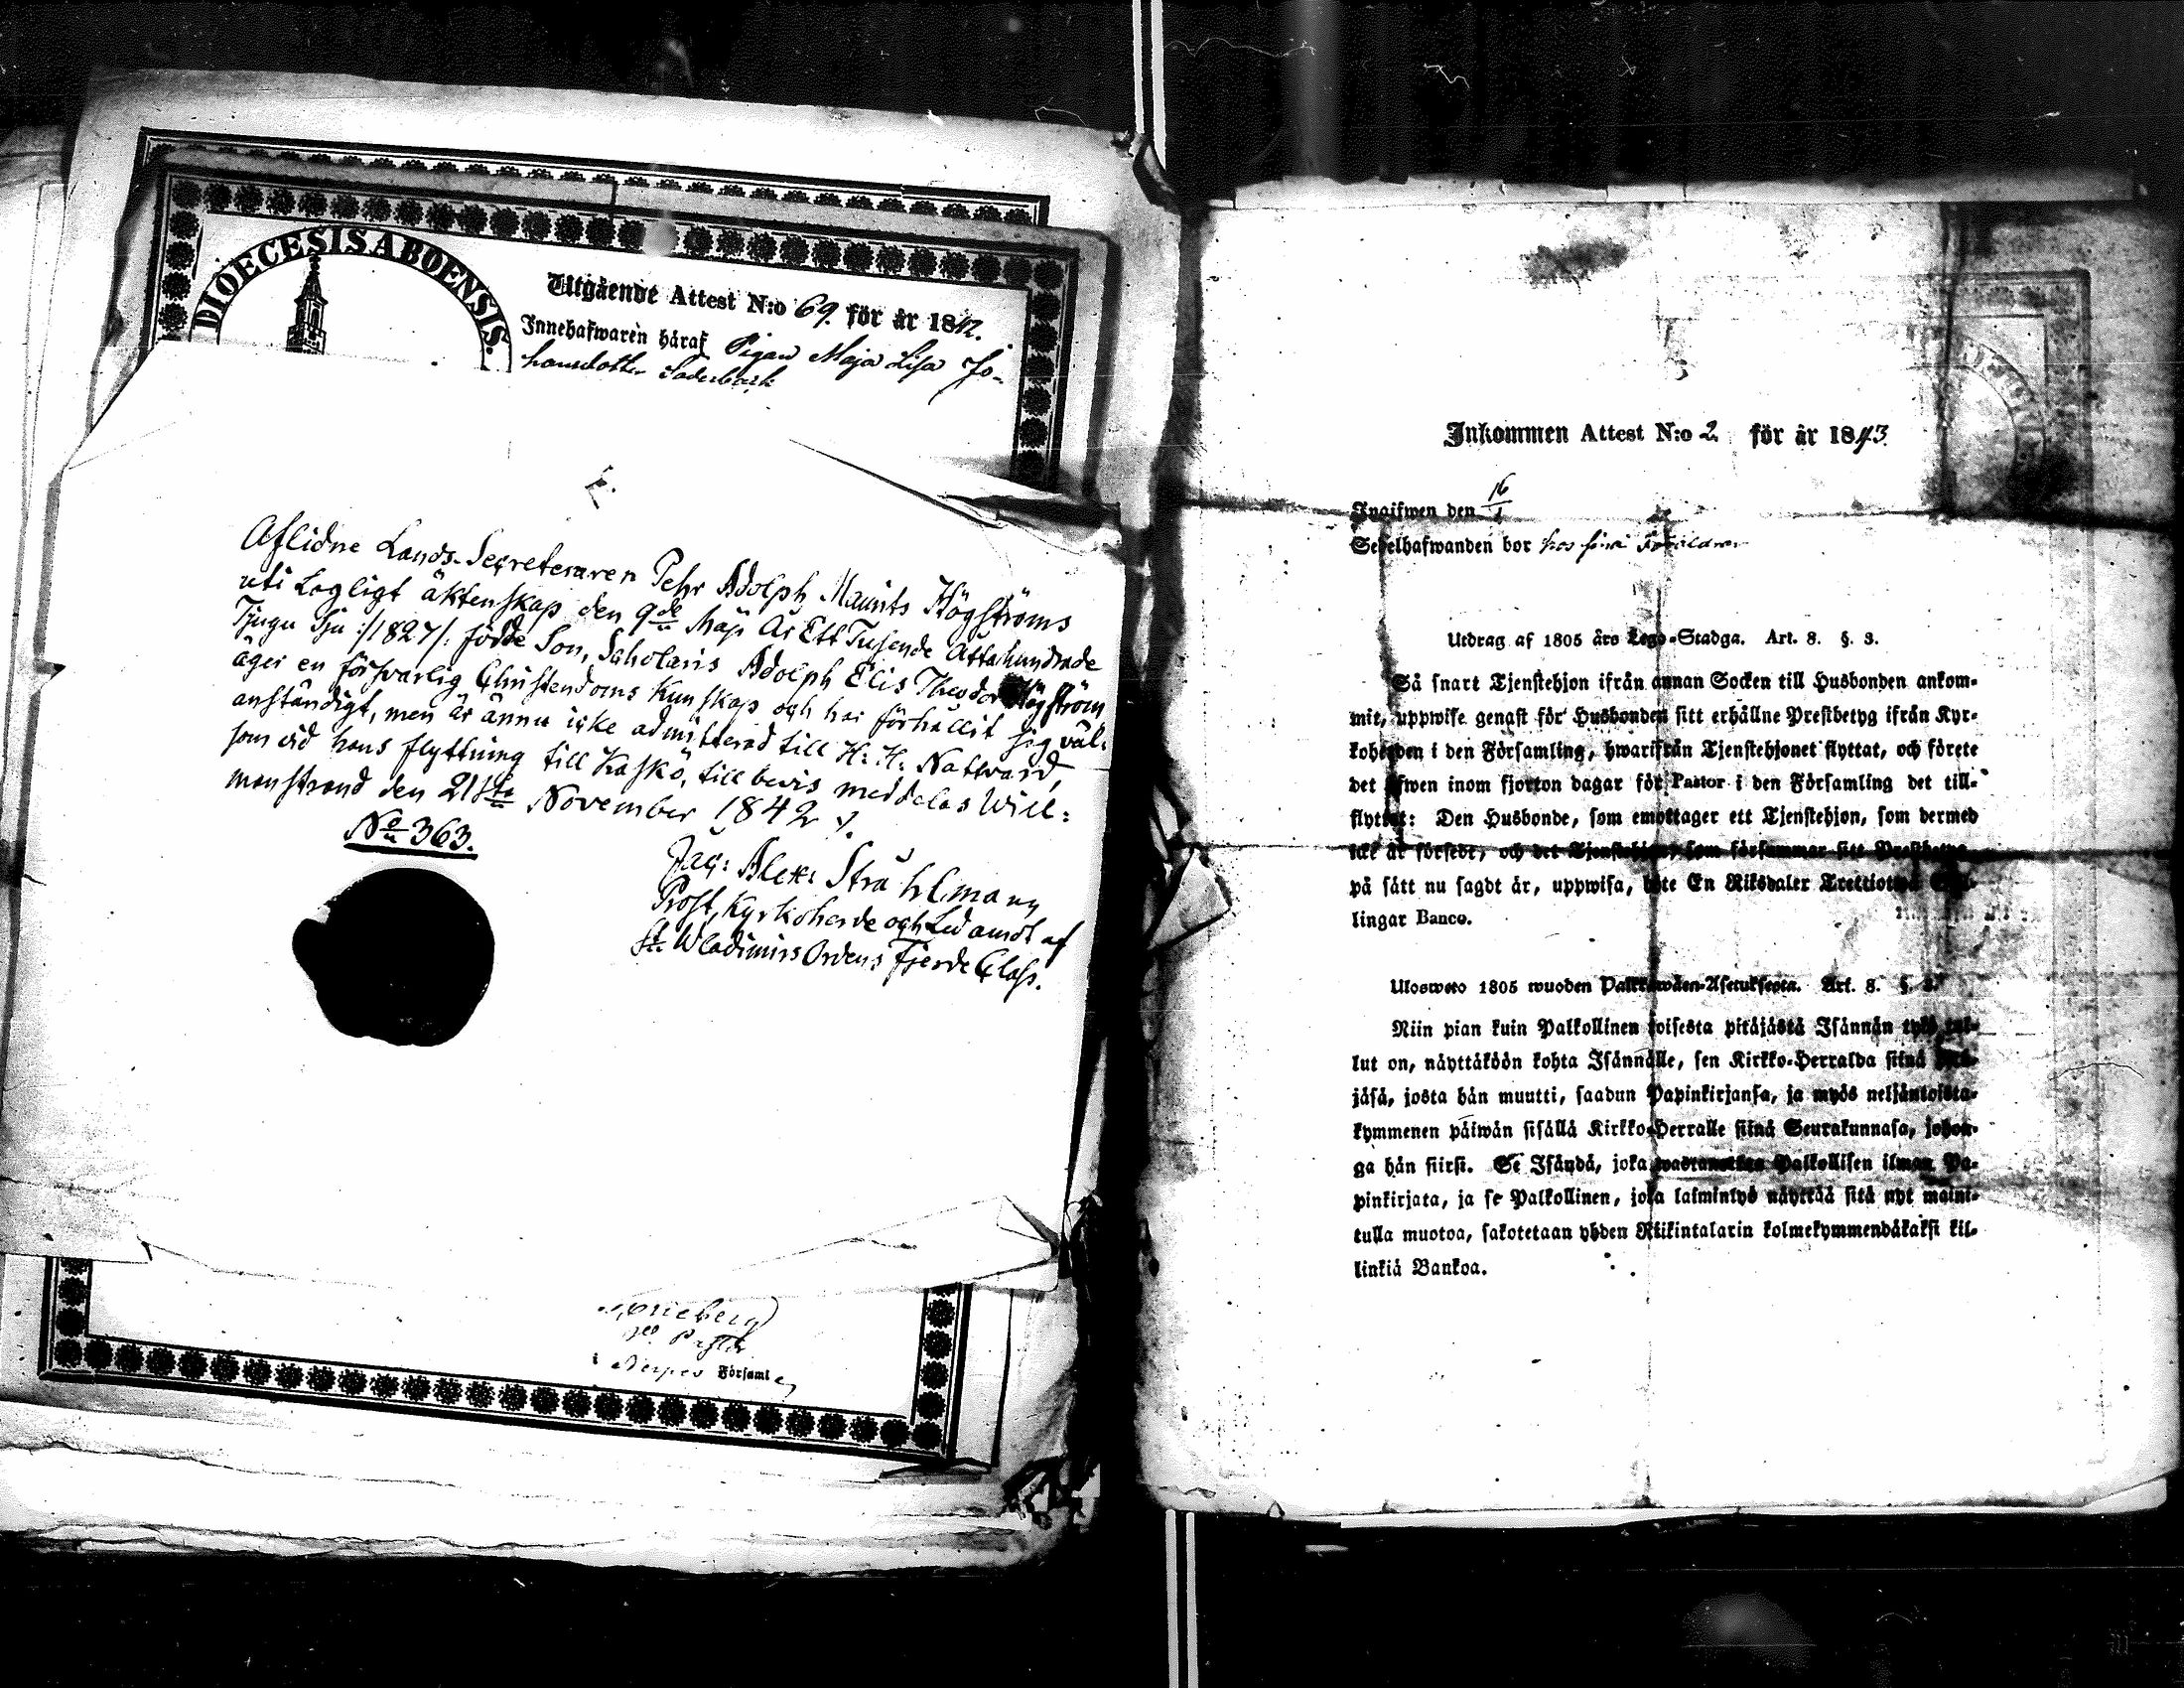 DIOECESIS ABOENSIS.
Utgående Attest N:o 69. för år 1842.
Innehafwaren häraf Pigan Maja Lisa Jo-
hansdotter Söderback
Aflidne Lands-Secreteraren Pehr Adolph Maurits Högströms
uti Lagligt äktenskap den 9de Maji År Ett Tusende Åttahundrade
Tjugu Sju :/1827/: födde Son, Scholaris Adolph Elis Theodor Högström
äger en försvarlig Christendoms Kunskap och har förhållit sig väl-
anständigt, men är ännu icke admitterad till H: H: Nattvard,
som vid hans flyttning till Kaskö, till bevis meddelas Will-
manstrand den 21sta November 1842 /.
No 363.
Jac: Alex: Stråhlmann
Prost, Kyrkoherde och Ledamot af
St. Wladimirs Ordens Fjerde Class.
Pastor
Nerpes Församl
Inkommen Attest N:o 2 för år 1843.
Ingifwen den 16/1
Sedelhafwanden bor hos sina Föräldrar
Utdrag af 1805 års Lego-Stadga. Art. 8. §. 3.
Så snart Tjenstehjon ifrån annan Socken till Husbonden ankom-
mit, uppwise genast för Husbonden sitt erhållne Prestbetyg ifrån Kyr-
koherden i den Församling, hwarifrån Tjenstehjonet flyttat, och förete
det äfwen inom fjorton dagar för Pastor i den Församling det till-
flyttat: Den Husbonde, som emottager ett Tjenstehjon, som dermed
icke är försedt, och det Tjenstehjon, som försummar sitt Prestbetyg
på sätt nu sagdt är, uppwisa, böte En Riksdaler Trettiotwå Skil-
lingar Banco.
Ulosweto 1805 wuoden Palkkawäen-Asetuksesta. Art. 8. §. 3.
Niin pian kuin Palkollinen toisesta pitäjästä Isännän tykö tul-
lut on, näyttäköön kohta Isännälle, sen Kirkko-Herralda siinä pitä-
jäsä, josta hän muutti, saadun Papinkirjansa, ja myös neljäntoista-
kymmenen päiwän sisällä Kirkko-Herralle siinä Seurakunnasa, johon-
ga hän siirsi. Se Isändä, joka wastanottaa Palkollisen ilman Pa-
pinkirjata, ja se Palkollinen, joka laiminlyö näyttää sitä nyt maini-
tulla muotoa, sakotetaan yhden Riikintalarin kolmekymmendäkaksi kil-
linkiä Bankoa.